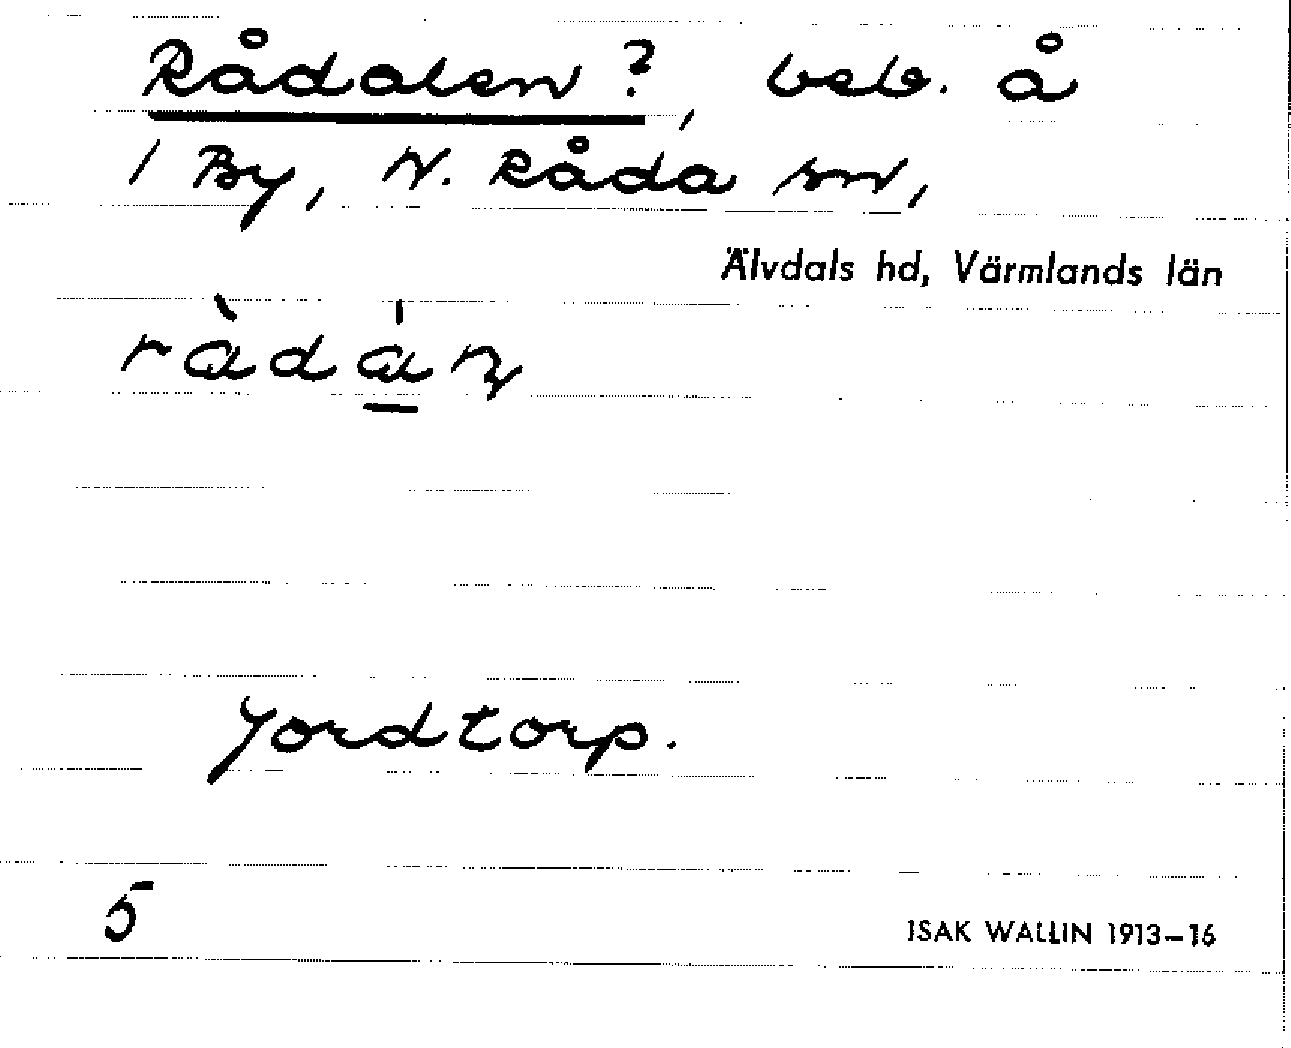 Rådalen?, beb. å
1 By, N. Råda sn,
Älvdals hd, Värmlands län
Jordtorp.
5
ISAK WALLIN 1913–16